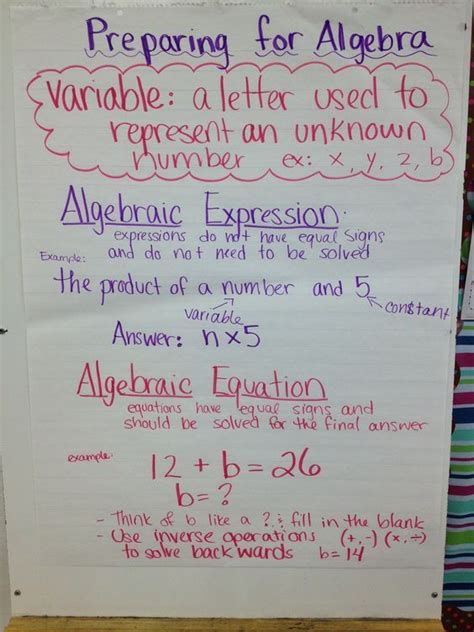 Preparing for Algebra
Variable: a letter used to
represent an unknown
number ex: x, y, z, b
Algebraic Expression:
expressions do not have equal signs
and do not need to be solved
Example:
the product of a number and 5
variable
constant
Answer: n x 5
Algebraic Equation
equations have equal signs and
should be solved for the final answer
example:
12 + b = 26
b = ?
- Think of b like a ? & fill in the blank
- Use inverse operations (+,-) (×,÷)
to solve backwards b=14